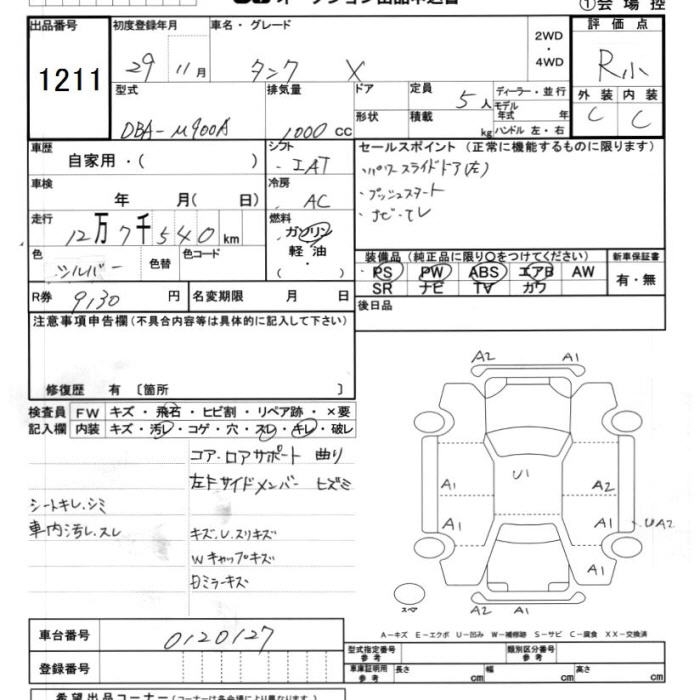 ①会 場 控
出品番号 初度登録年月 車名・グレード 2WD・4WD 評 価 点
1211 29 11月 タンク X R小
型式 排気量 ドア 定員 ディーラー・並 行 外 装 内 装
DBA-M900A 1000 CC 形状 積載 5人 モデル年式 年 C C
kg ハンドル 左・右
車歴 シフト セールスポイント(正常に機能するものに限ります)
自家用・( ) IAT ・パワースライドドア(左)
車検 冷房 ・プッシュスタート
年 月( 日) AC ・ナビ・テレ
走行 燃料
12万7千540km ガソリン
色 色替 色コード 軽 油
シルバー ・( )
装備品(純正品に限り○をつけてください) 新車保証書
PS PW ABS エアB AW 有・無
SR ナビ TV カワ
R券 9130 円 名変期限 月 日 後日品
注意事項申告欄(不具合内容等は具体的に記入して下さい)
修復歴 有 〔箇所 〕
検査員 FW キズ・飛石・ヒビ割・リペア跡・×要
記入欄 内装 キズ・汚レ・コゲ・穴・スレ・キレ・破レ
コア・ロアサポート 曲り
左F サイドメンバー ヒズミ
シートキレ、シミ
車内汚レ、スレ
キズ、U、スリキズ
Wキャップキズ
ミラーキズ
A2 A1
U1
A1 A2
A1 A1 UA2
A2 A1 A1
スペア
A-キズ E-エクボ U-凹み W-補修跡 S-サビ C-腐食 XX-交換済
車台番号 0120127
登録番号
型式指定番号 参 考 類別区分番号 参 考
車庫証明用 参 考 長さ cm 幅 cm 高さ cm
希望出品コーナー